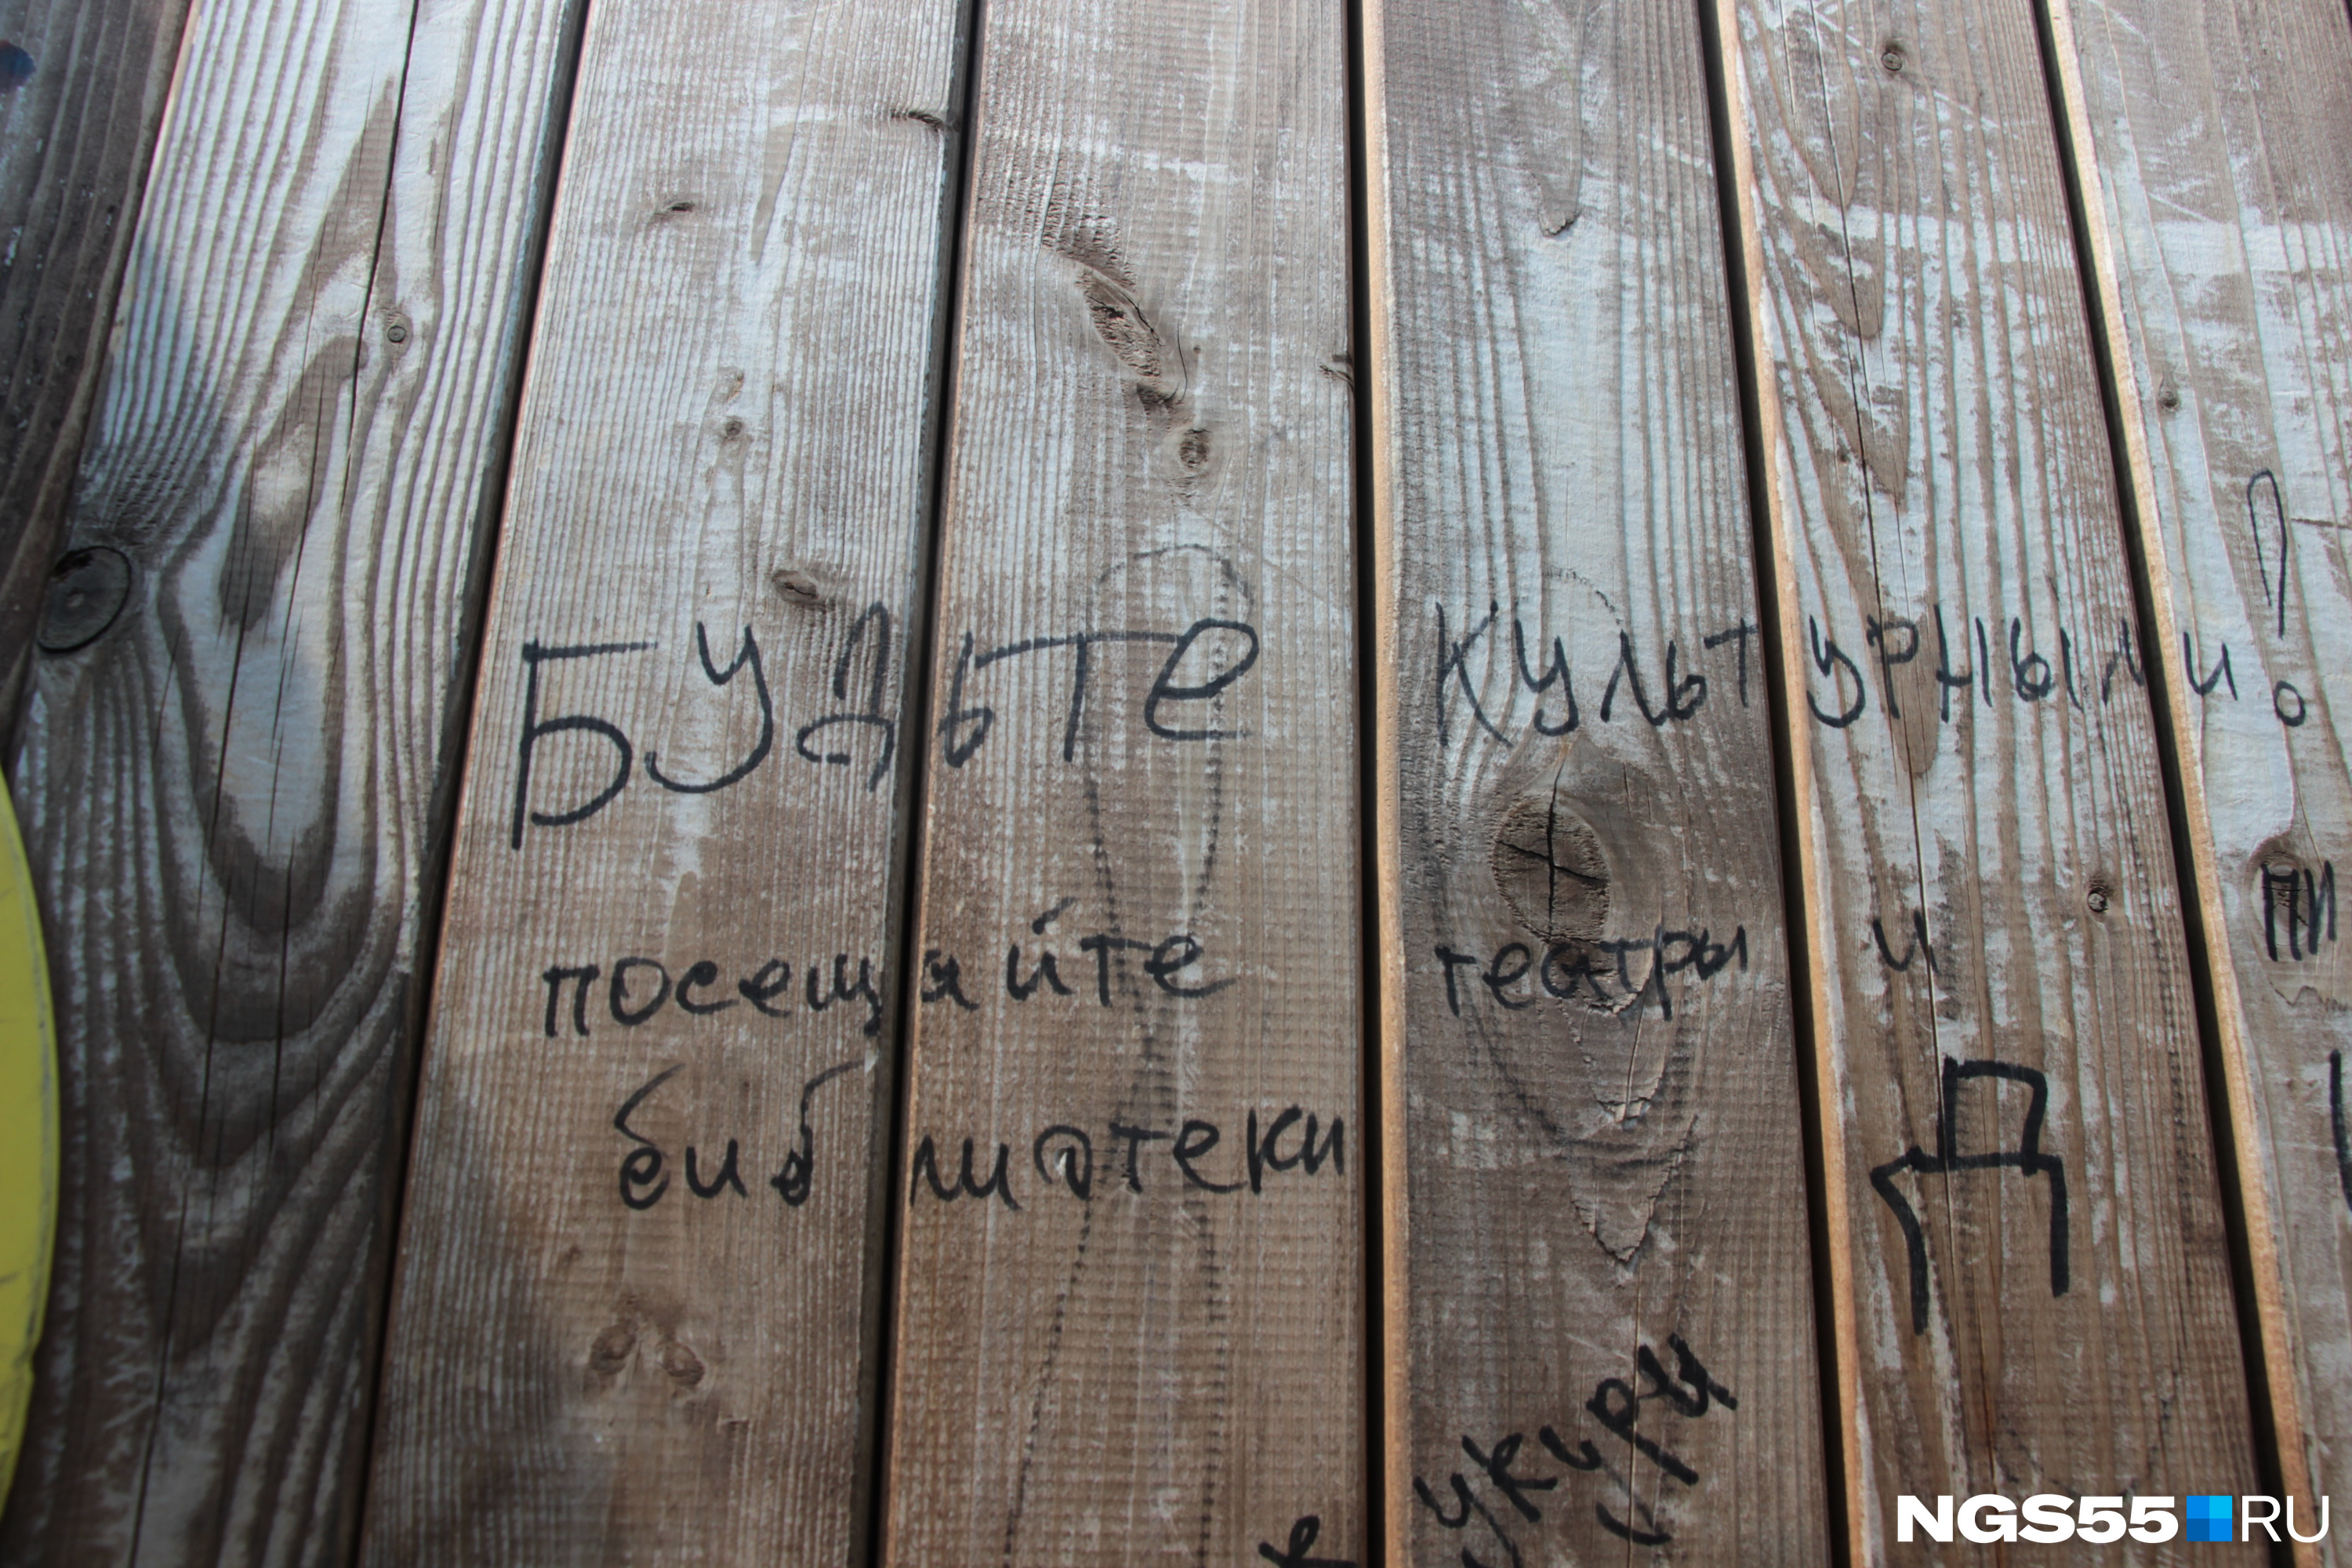 Будьте культурными!
посещайте театры и
библиотеки
Д
NGS55 RU